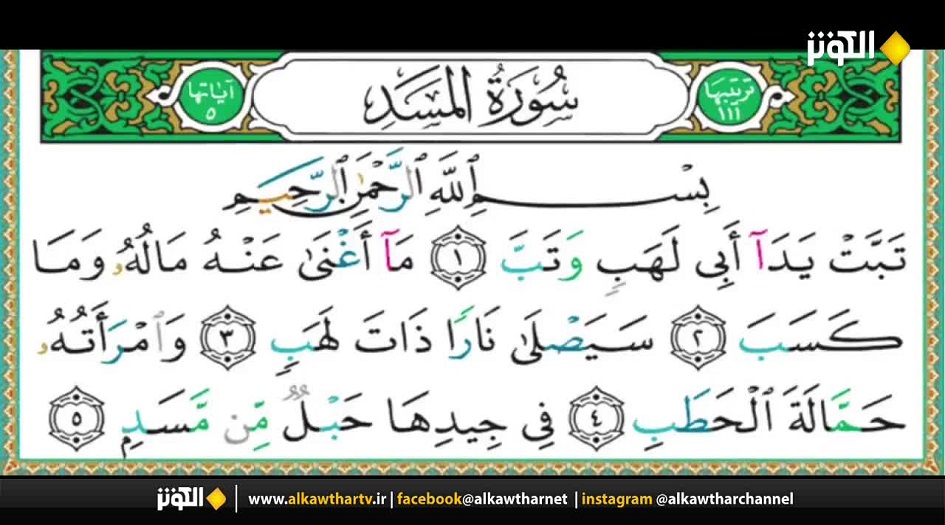 الكوثر
ترتيبها ١١١
سُورَةُ المَسَد
آياتها ٥
بِسْمِ ٱللَّهِ ٱلرَّحْمَٰنِ ٱلرَّحِيمِ
تَبَّتْ يَدَآ أَبِي لَهَبٍ وَتَبَّ ١ مَآ أَغْنَىٰ عَنْهُ مَالُهُۥ وَمَا
كَسَبَ ٢ سَيَصْلَىٰ نَارًا ذَاتَ لَهَبٍ ٣ وَٱمْرَأَتُهُۥ
حَمَّالَةَ ٱلْحَطَبِ ٤ فِي جِيدِهَا حَبْلٌ مِّن مَّسَدٍ ٥
الكوثر | www.alkawthartv.ir | facebook@alkawtharnet | instagram @alkawtharchannel